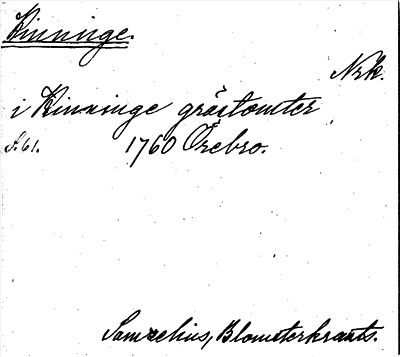 Kinninge.
Nrk.
i Kinninge grästomter
S. 61. 1760 Örebro.
Samzelius, Blomsterkrants.